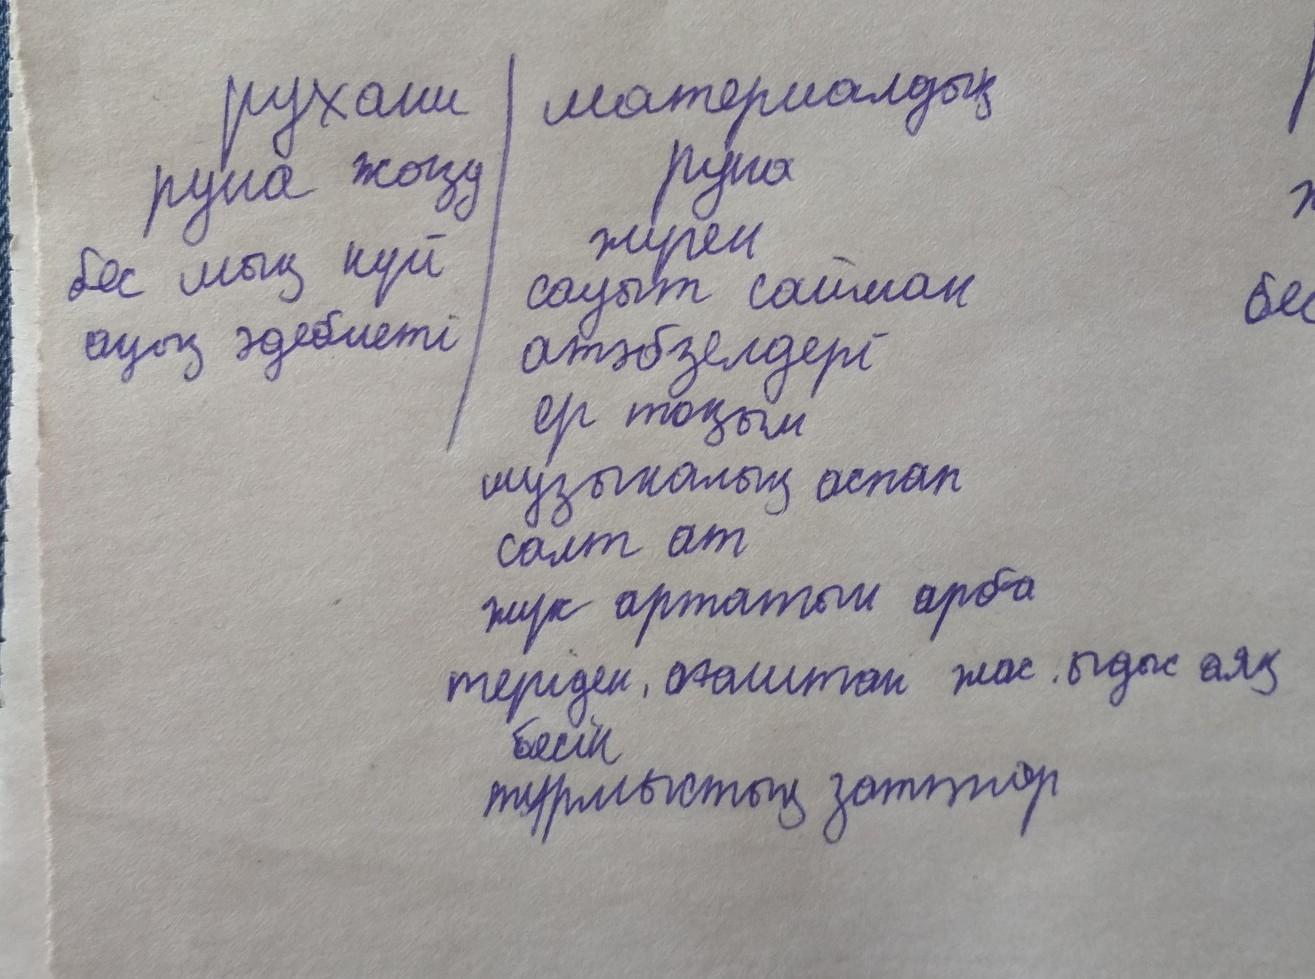 рухани
руна жазу
бес мың күй
ақың әдебиеті
материалдық
руна
жүген
сауыт сайман
атәбзелдері
ер тоқым
музыкалық аспап
салт ат
жүк артатын арба
теріден, ағаштан жас. ыдыс аяқ
бесік
тұрмыстық заттар
бес